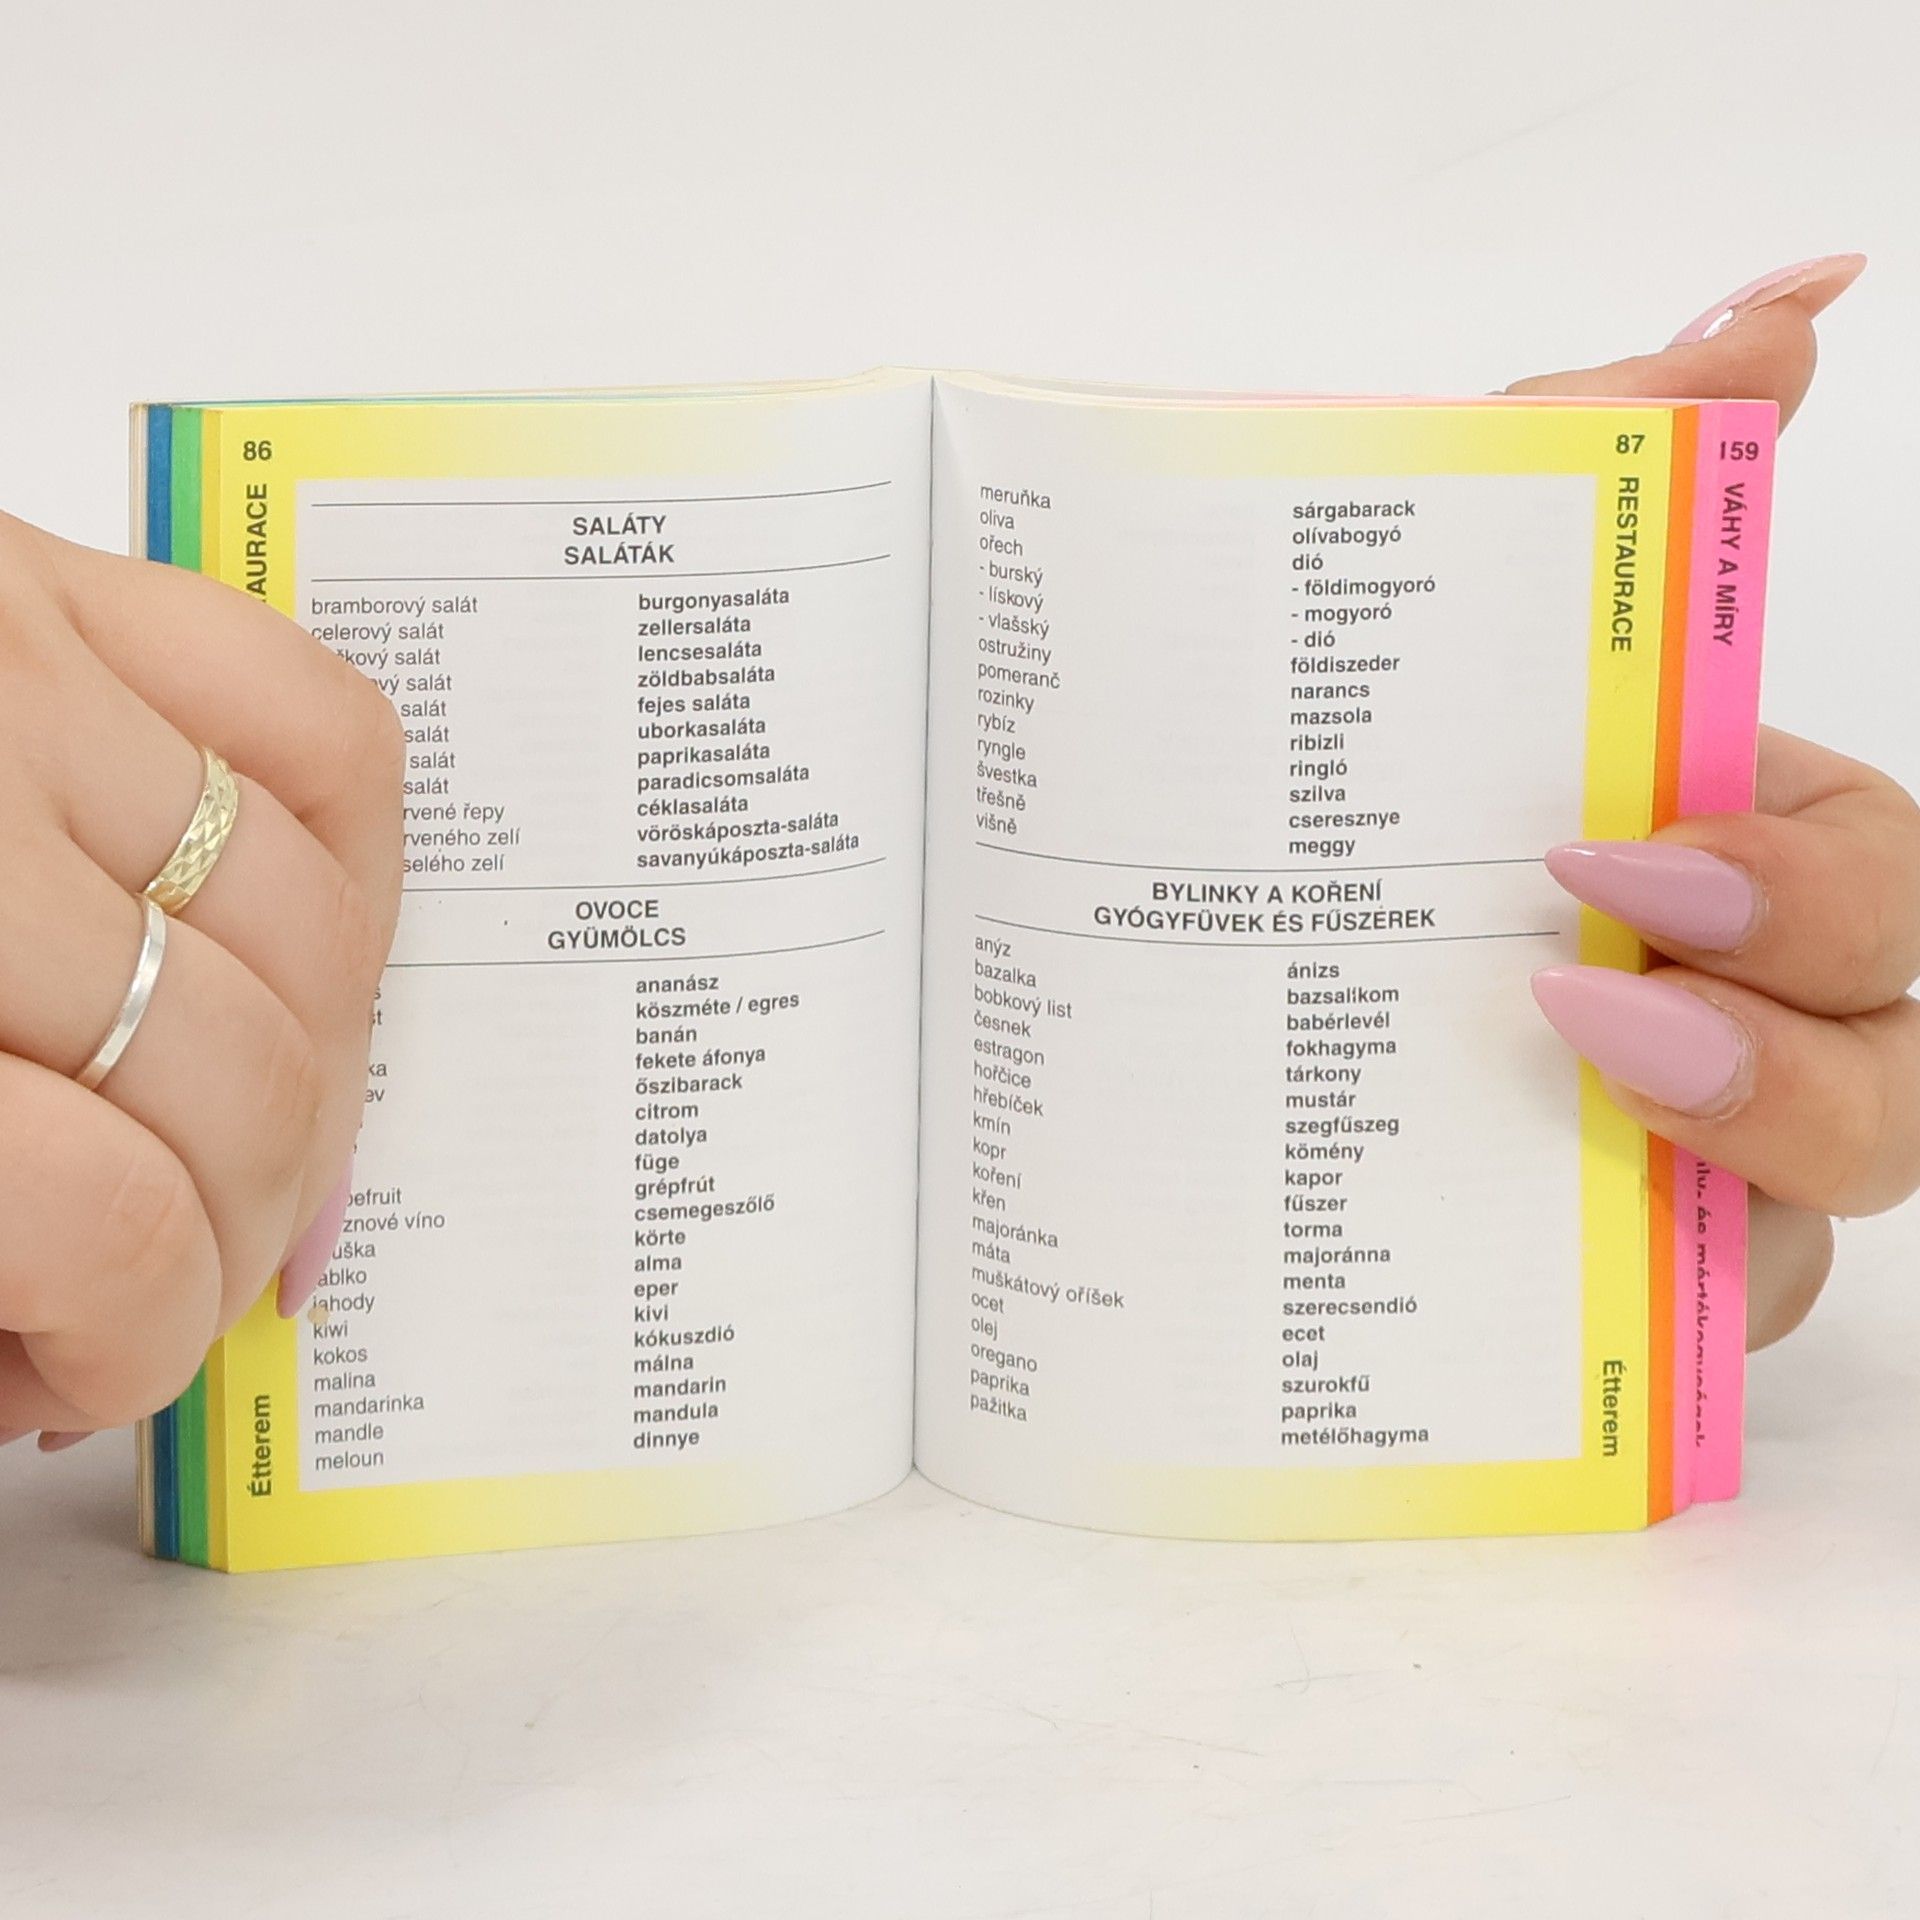 86
SALÁTY
SALÁTÁK
bramborový salát burgonyasaláta
celerový salát zellersaláta
salát lencsesaláta
salát zöldbabsaláta
salát fejes saláta
salát uborkasaláta
salát paprikasaláta
salát paradicsomsaláta
řepy céklasaláta
zelí vöröskáposzta-saláta
zelí savanyúkáposzta-saláta
OVOCE
GYÜMÖLCS
ananász
köszméte / egres
banán
fekete áfonya
őszibarack
citrom
datolya
füge
grépfrút
víno csemegeszőlő
körte
alma
jahody eper
kiwi kivi
kokos kókuszdió
malina málna
mandarinka mandarin
mandle mandula
meloun dinnye
Étterem
87
RESTAURACE
meruňka sárgabarack
oliva olívabogyó
ořech dió
- burský - földimogyoró
- lískový - mogyoró
- vlašský - dió
ostružiny földiszeder
pomeranč narancs
rozinky mazsola
rybíz ribizli
ryngle ringló
švestka szilva
třešně cseresznye
višně meggy
BYLINKY A KOŘENÍ
GYÓGYFÜVEK ÉS FŰSZEREK
anýz ánizs
bazalka bazsalikom
bobkový list babérlevél
česnek fokhagyma
estragon tárkony
hořčice mustár
hřebíček szegfűszeg
kmín kömény
kopr kapor
koření fűszer
křen torma
majoránka majoránna
máta menta
muškátový oříšek szerecsendió
ocet ecet
olej olaj
oregano szurokfű
paprika paprika
pažitka metélőhagyma
Étterem
159
VÁHY A MÍRY